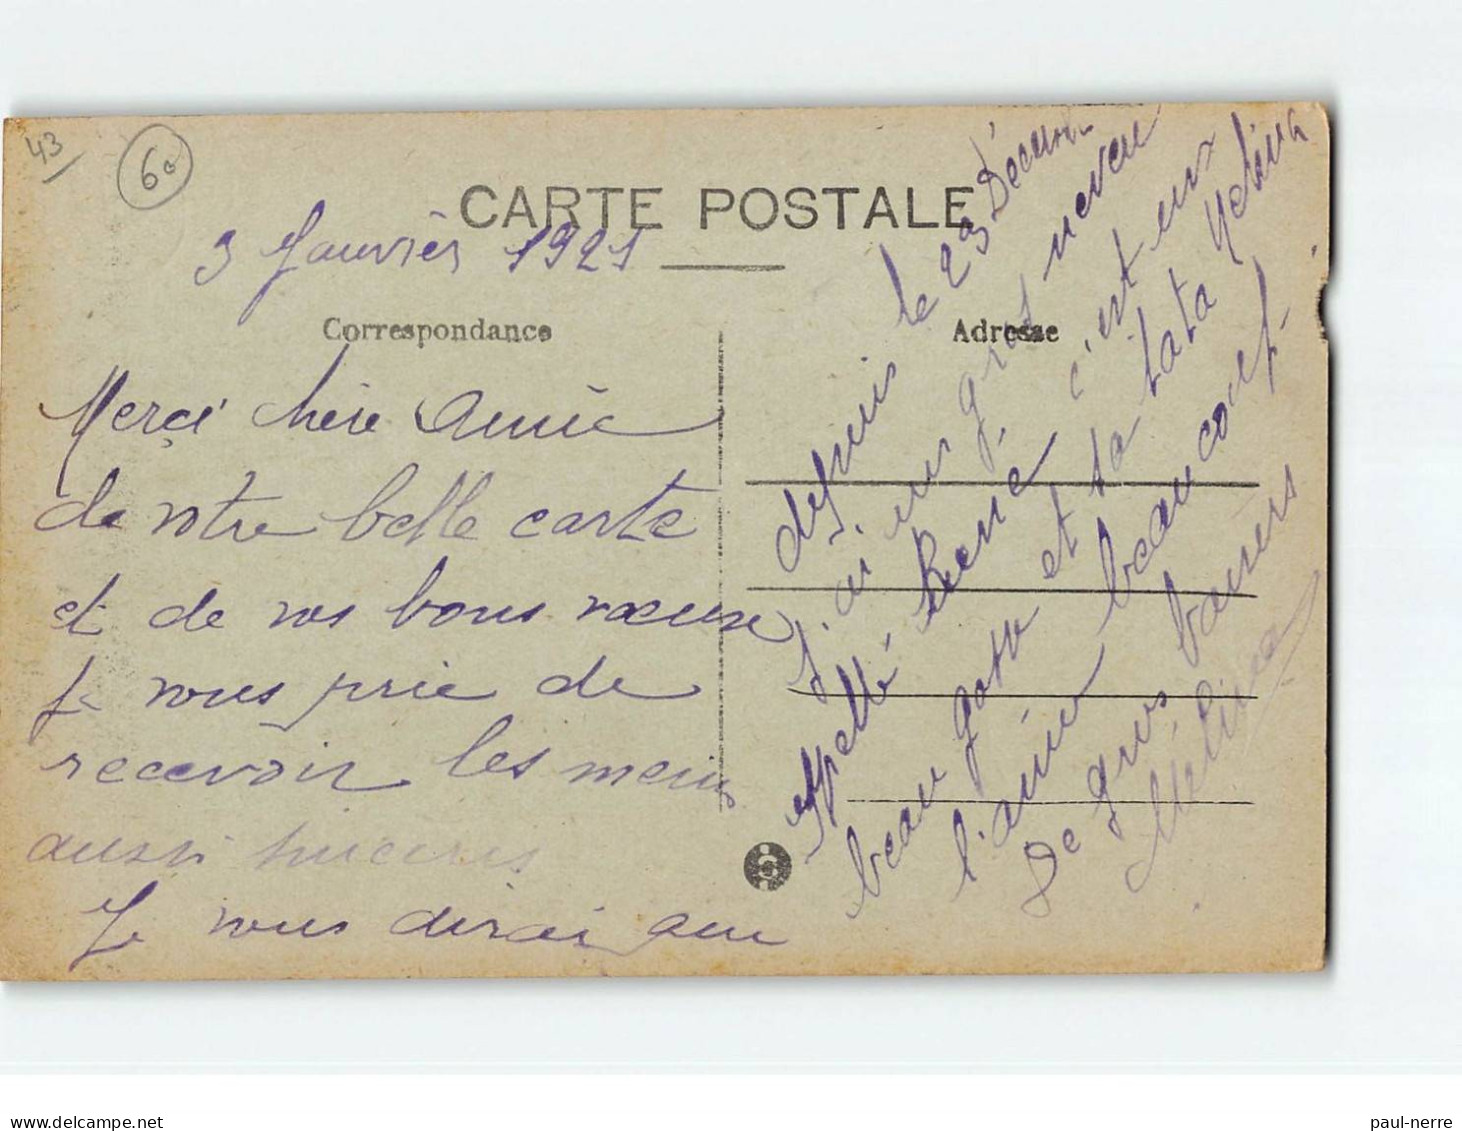 43
60
CARTE POSTALE
3 Janvièr 1921
Correspondance
Adresse
Merçi chère Amie
de votre belle carte
et de vos bons vœux
Je vous prie de
recevoir les miens
aussi sincères
Je vous dirai que
depuis le 23 Décem
j'ai un gros neveu
appellé René c'est un
beau gosse et sa tata
l'aime beaucoup
De gros baisers
Mélina
delcampe.net
paul-nerre